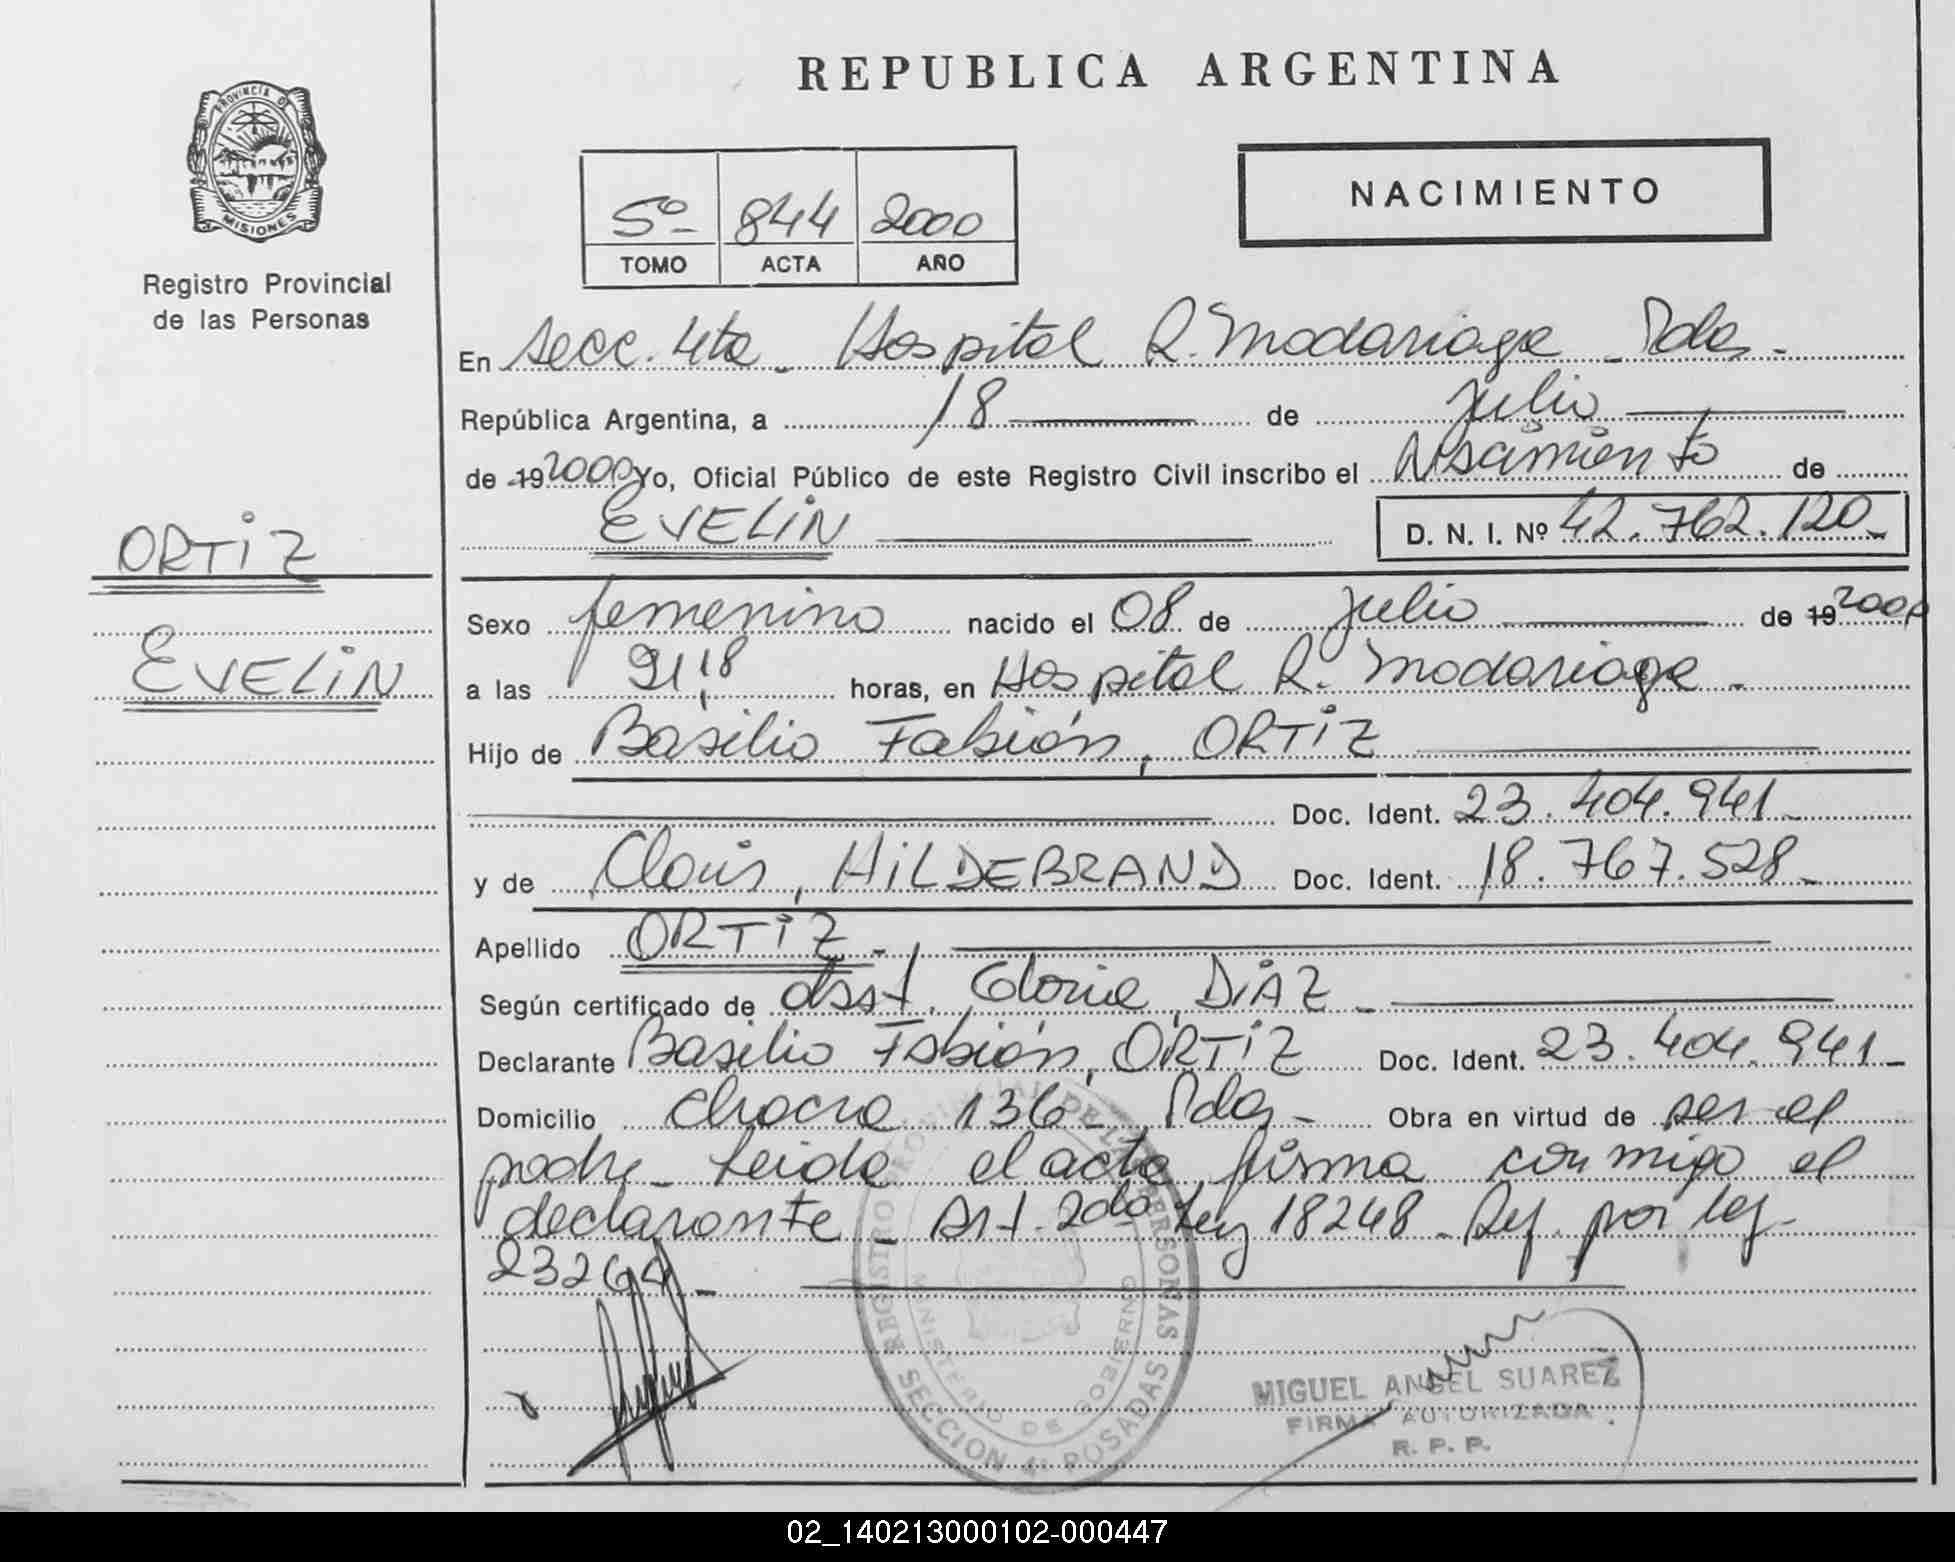 REPUBLICA ARGENTINA
PROVINCIA DE
MISIONES
Registro Provincial
de las Personas
5º 844 2000
TOMO ACTA AÑO
NACIMIENTO
En Secc. 4ta - Hospital R. Madariaga - Pdas -
República Argentina, a 18 de Julio
de 19 2000 Yo, Oficial Público de este Registro Civil inscribo el Nacimiento de
EVELIN D. N. I. Nº 42.762.120-
ORTIZ
EVELIN
Sexo femenino nacido el 08 de Julio de 19 2000
a las 21,18 horas, en Hospital R. Madariaga -
Hijo de Basilio Fabián, ORTIZ
Doc. Ident. 23.404.941-
y de Clovis, HILDEBRAND Doc. Ident. 18.767.528-
Apellido ORTIZ -
Según certificado de obst. Gloria DIAZ -
Declarante Basilio Fabián, ORTIZ Doc. Ident. 23.404.941-
Domicilio chacra 136 - Pdas - Obra en virtud de ser el
padre - Leida el acta firma conmigo el
declarante - Art. 2do Ley 18248 - Ref. por ley -
23264 -
REGISTRO PROVINCIAL DE LAS PERSONAS
MINISTERIO DE GOBIERNO
SECCION 4ª POSADAS
MIGUEL ANGEL SUAREZ
FIRMA AUTORIZADA
R. P. P.
02_140213000102-000447